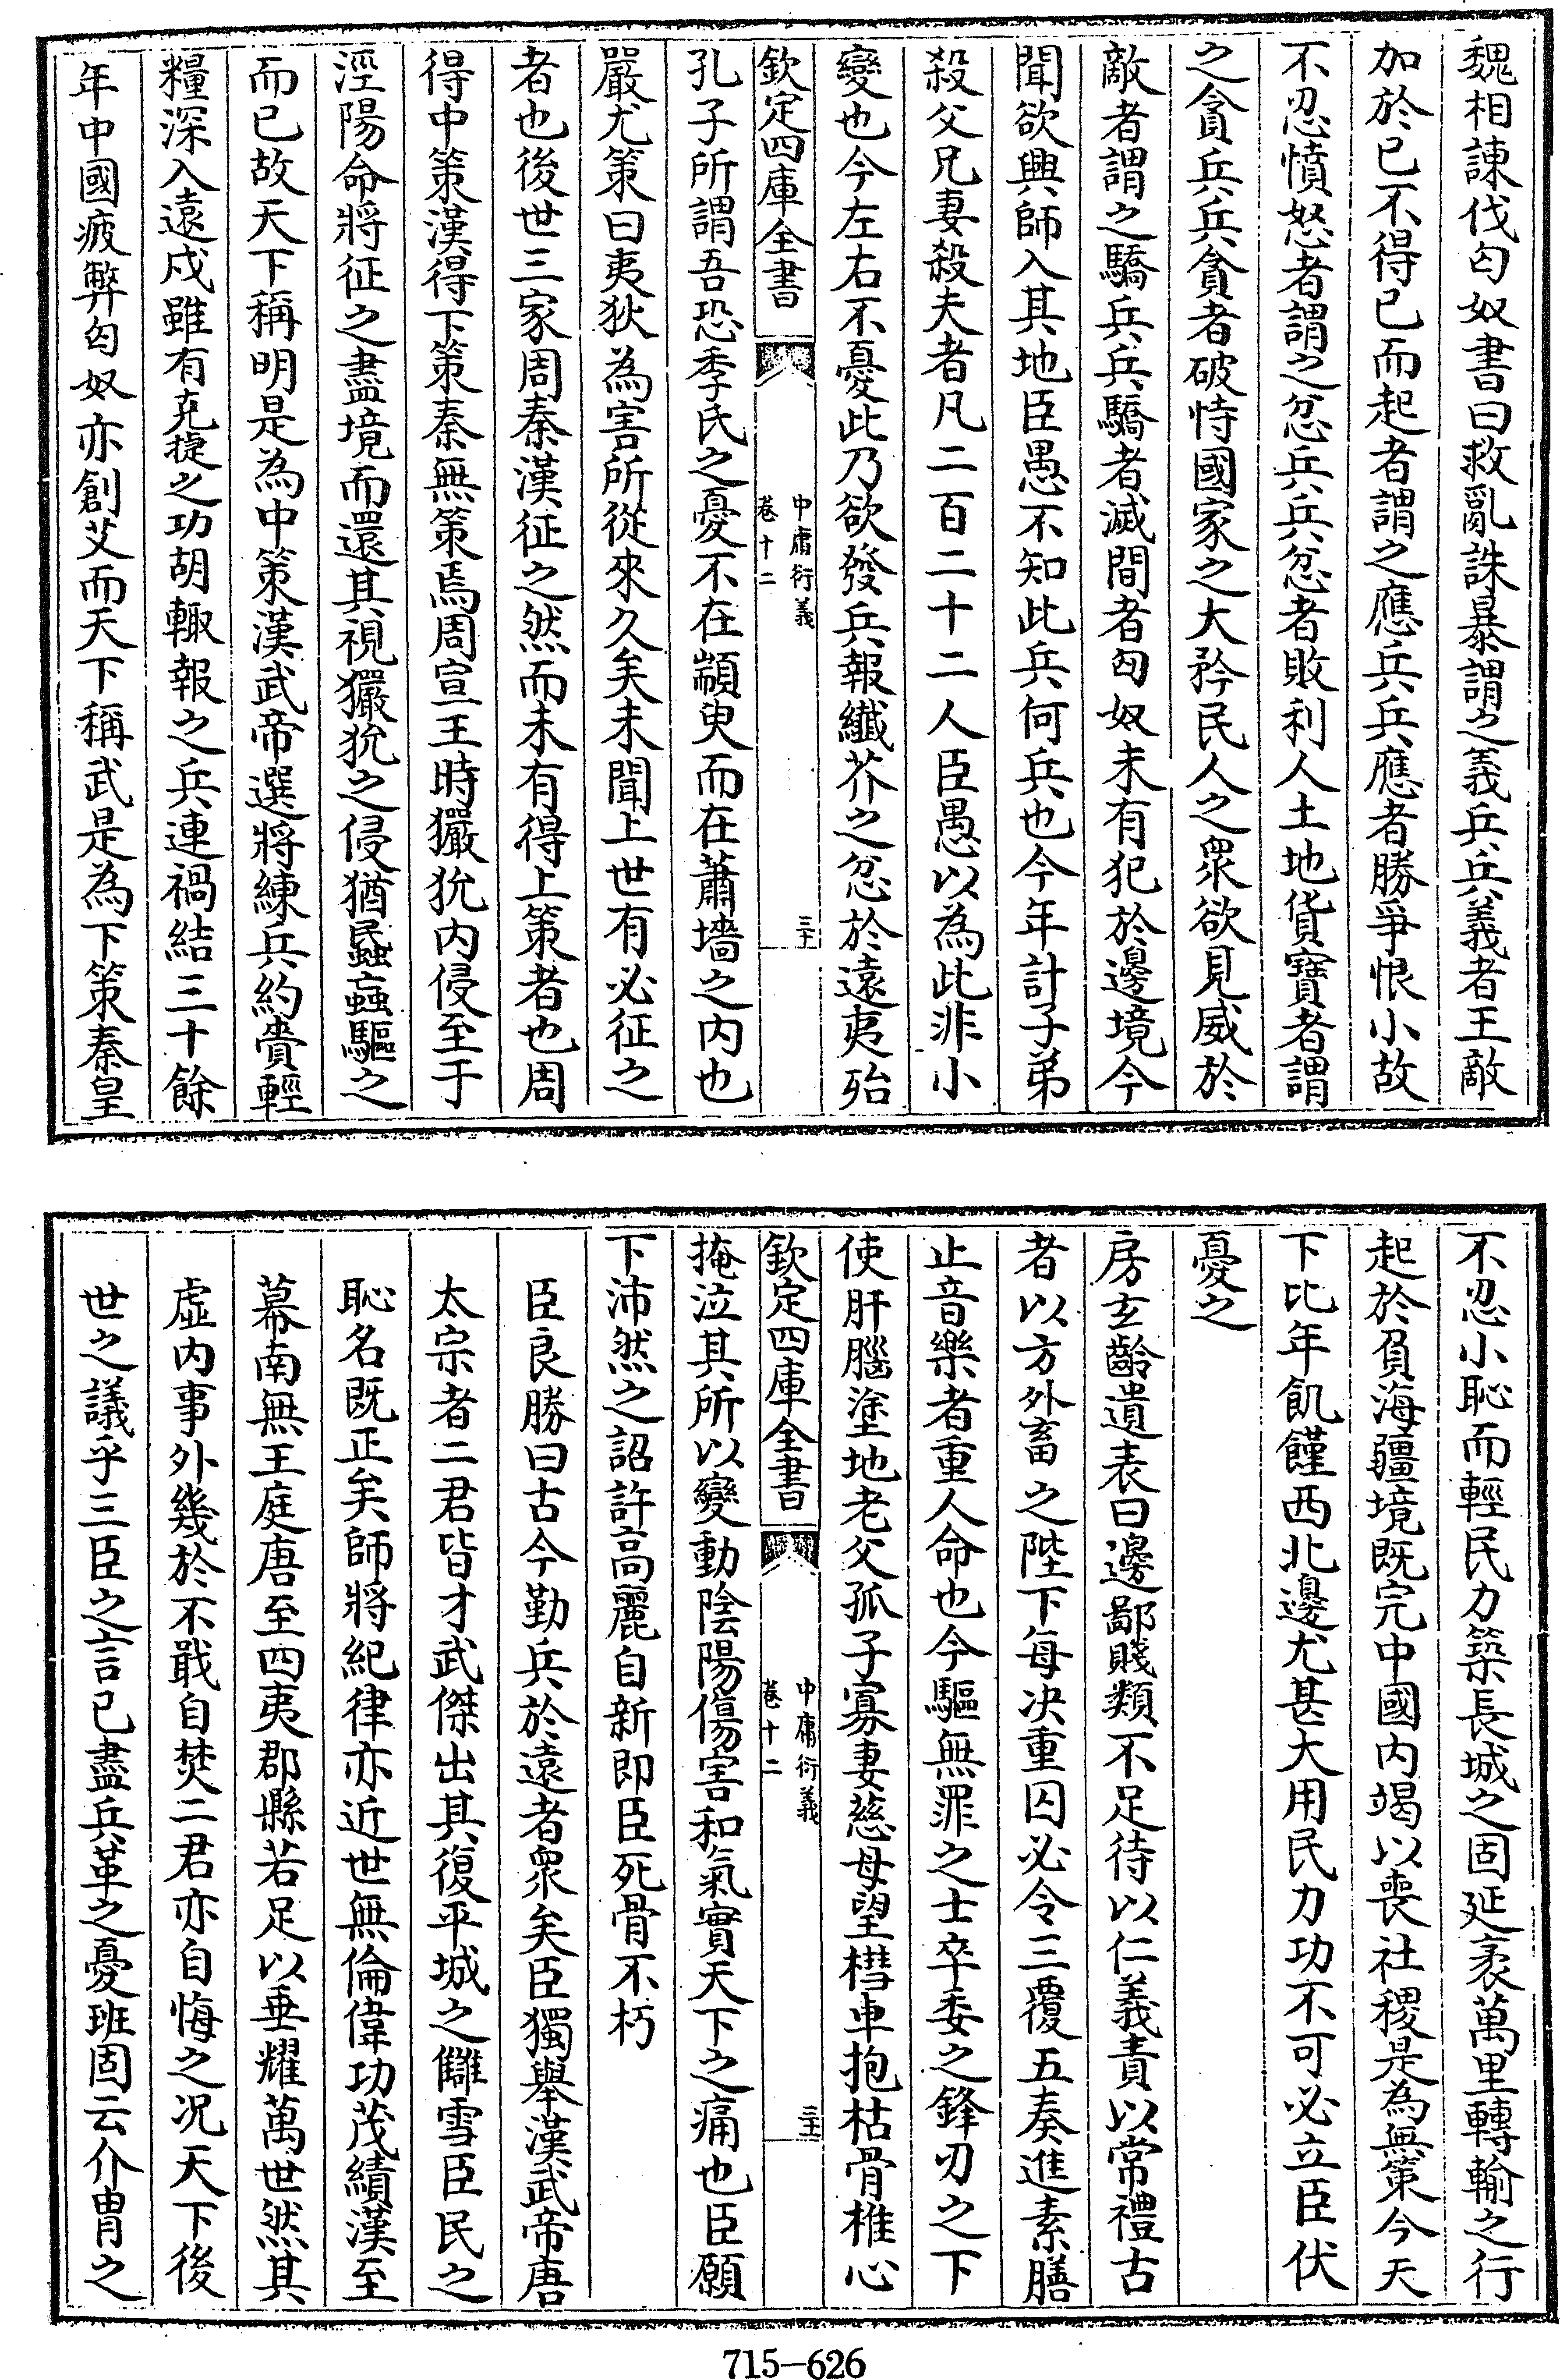 魏相諫伐匈奴書曰救亂誅暴謂之義兵兵義者王敵
加於己不得已而起者謂之應兵兵應者勝爭恨小故
不忍憤怒者謂之忿兵兵忿者敗利人土地貨寶者謂
之貪兵兵貪者破恃國家之大矜民人之衆欲見威於
敵者謂之驕兵兵驕者滅間者匈奴未有犯於邊境今
聞欲興師入其地臣愚不知此兵何兵也今年計子弟
殺父兄妻殺夫者凡二百二十二人臣愚以為此非小
變也今左右不憂此乃欲發兵報纖芥之忿於遠夷殆
欽定四庫全書
中庸衍義
卷十二
三十
孔子所謂吾恐季氏之憂不在顓臾而在蕭墻之内也
嚴尤策曰夷狄為害所從來久矣未聞上世有必征之
者也後世三家周秦漢征之然而未有得上策者也周
得中策漢得下策秦無策焉周宣王時玁狁内侵至于
涇陽命將征之盡境而還其視玁狁之侵猶蟁蝱驅之
而已故天下稱明是為中策漢武帝選將練兵約賫輕
糧深入遠戍雖有克捷之功胡輙報之兵連禍結三十餘
年中國疲弊匈奴亦創艾而天下稱武是為下策秦皇
不忍小恥而輕民力築長城之固延袤萬里轉輸之行
起於負海疆境既完中國内竭以喪社稷是為無策今天
下比年飢饉西北邊尤甚大用民力功不可必立臣伏
憂之
房玄齡遺表曰邊鄙賤類不足待以仁義責以常禮古
者以方外畜之陛下每决重囚必令三覆五奏進素膳
止音樂者重人命也今驅無罪之士卒委之鋒刃之下
使肝腦塗地老父孤子寡妻慈母望槥車抱枯骨椎心
欽定四庫全書
中庸衍義
卷十二
三十一
掩泣其所以變動陰陽傷害和氣實天下之痛也臣願
下沛然之詔許高麗自新即臣死骨不朽
臣良勝曰古今勤兵於遠者衆矣臣獨舉漢武帝唐
太宗者二君皆才武傑出其復平城之讎雪臣民之
恥名既正矣師將紀律亦近世無倫偉功茂績漢至
幕南無王庭唐至四夷郡縣若足以垂耀萬世然其
虛内事外幾於不戢自焚二君亦自悔之况天下後
世之議乎三臣之言已盡兵革之憂班固云介胄之
715-626